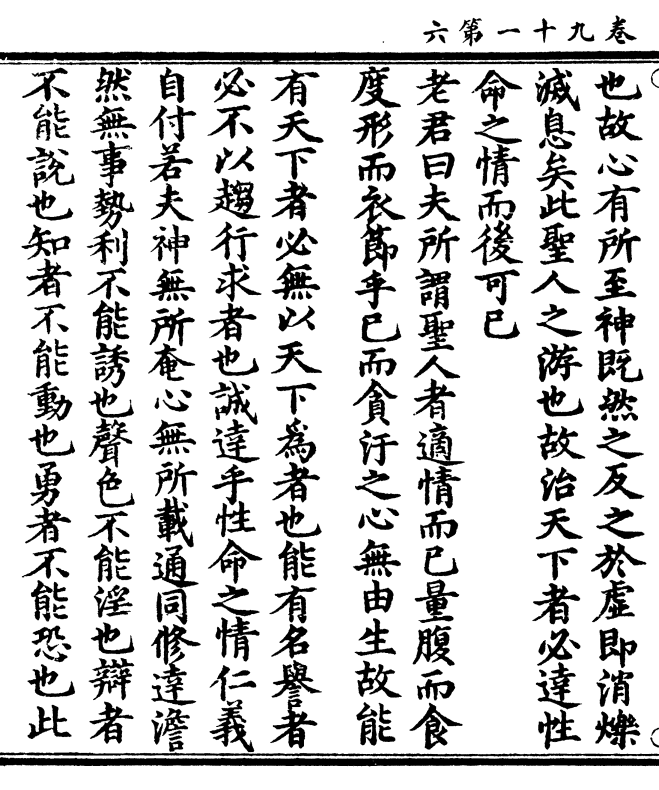 卷九十一第六
也故心有所至神旣然之反之於虛卽消爍
滅息矣此聖人之游也故治天下者必達性
命之情而後可已
老君曰夫所謂聖人者適情而已量腹而食
度形而衣節乎已而貪汙之心無由生故能
有天下者必無以天下爲者也能有名譽者
必不以趨行求者也誠達乎性命之情仁義
自付若夫神無所奄心無所載通同修達澹
然無事勢利不能誘也聲色不能淫也辯者
不能說也知者不能動也勇者不能恐也此